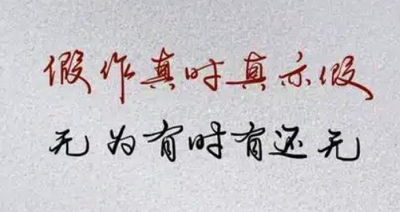 假作真时真亦假
无为有时有还无